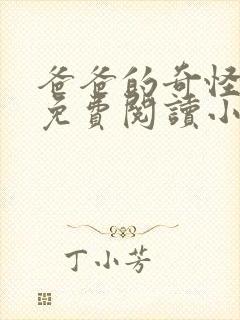 爸爸的奇怪
免費閱讀小
丁小芳